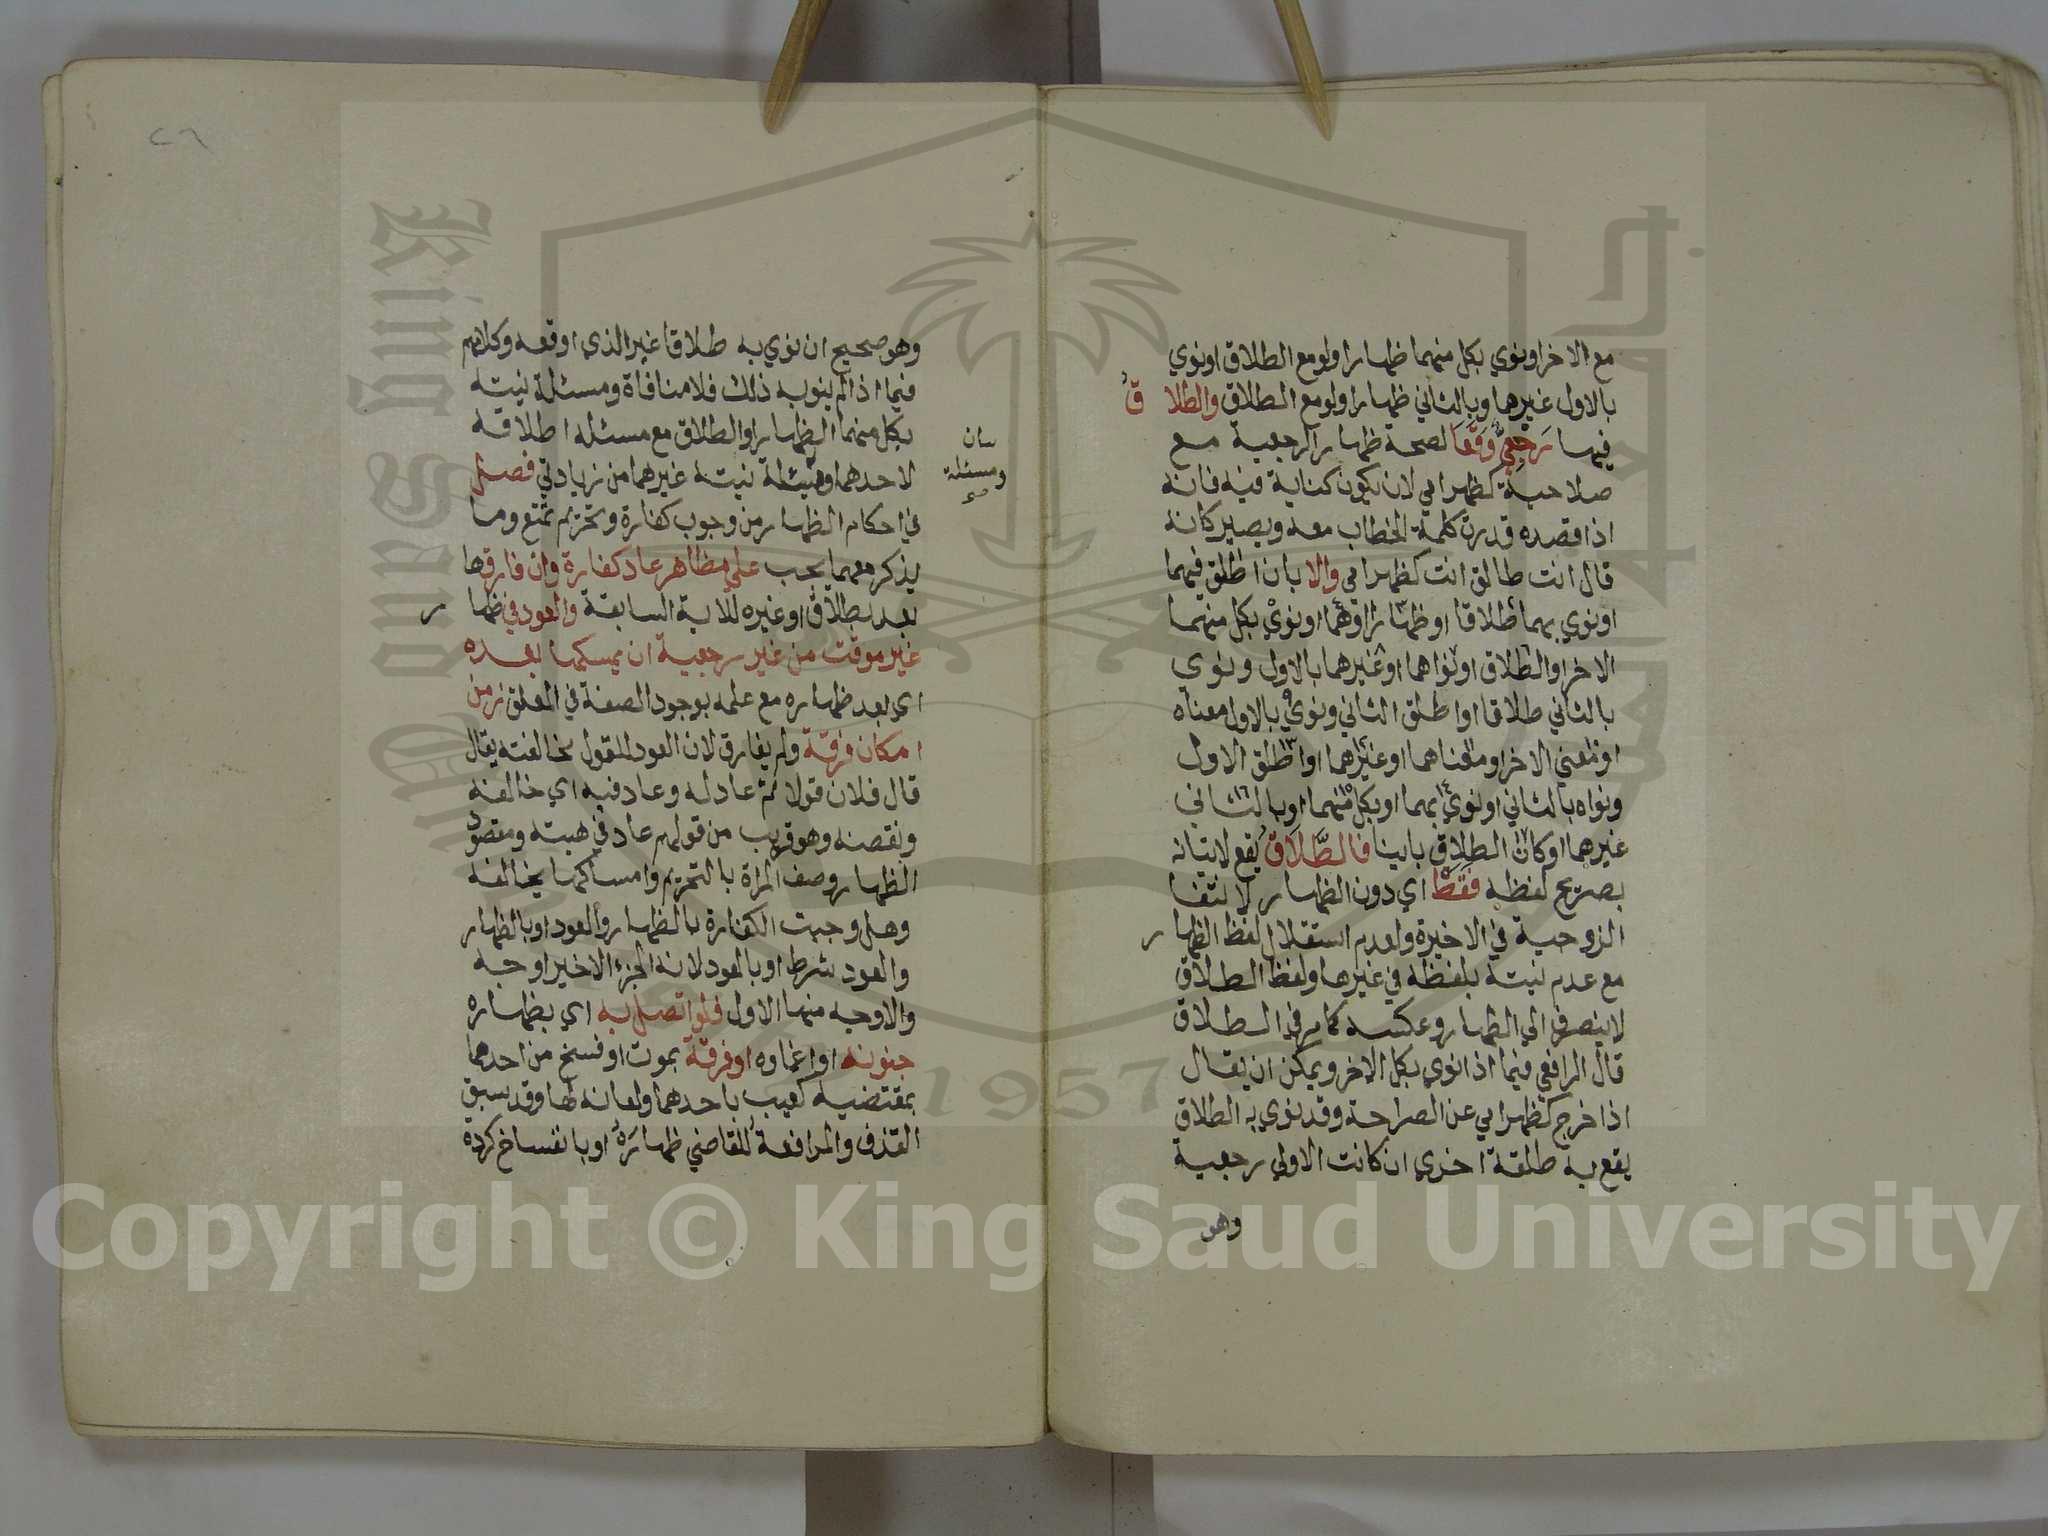 مع الاخر او نوي بكل منهما ظهارا ولو مع الطلاق او نوي
بالاول غيرها وبالثاني ظهارا ولو مع الطلاق والطلاق
فيها رجعي وقعا لصحة ظهار الرجعية مع
صلاحية كظهر امي لان يكون كناية فيه فانه
اذا قصده قدرت كلمة الخطاب معه ويصير كانه
قال انت طالق انت كظهر امي والا بان اطلق فيهما
او نوي بهما طلاقا او ظهارا او هما او نوي بكل منهما
الاخر او الطلاق او نواهما او غيرهما بالاول ونوي
بالثاني طلاقا او اطلق الثاني ونوي بالاول معناه
او معني الاخر او معناهما او غيرهما او اطلق الاول
ونواه بالثاني او نوي بهما او بكل منهما او بالثاني
غيرهما او كان الطلاق باينا فالطلاق يقع لاتيانه
بصريح لفظه فقط اي دون الظهار لانتفا
الزوجية في الاخيرة ولعدم استقلال لفظ الظهار
مع عدم نيته بلفظه في غيرها ولفظ الطلاق
لا ينصرف الي الظهار وعكسه كما مر في الطلاق
قال الرافعي فيما اذا نوي بكل الاخر ويمكن ان يقال
اذا خرج كظهر امي عن الصراحة وقد نوي به الطلاق
يقع به طلقة اخري ان كانت الاولي رجعية
وهو
٢٦
وهو صحيح ان نوي به طلاقا غير الذي اوقعه وكلامهم
فيما اذا لم ينو به ذلك فلا منافاة ومسئلة نيته
بكل منهما الظهار او الطلاق مع مسئلة اطلاقه
لاحدهما ومسئلة نيته غيرهما من زيادتي فصل
في احكام الظهار من وجوب كفارة وتحريم تمتع وما
يذكر معهما يجب علي مظاهر عاد كفارة وان فارقها
بعد بطلاق او غيره للاية السابقة والعود في ظهار
غير موقت من غير رجعية ان يمسكها بعده
اي بعد ظهاره مع علمه بوجود الصفة في المعلق زمن
امكان فرقة ولم يفارق لان العود للقول مخالفته يقال
قال فلان قولا ثم عاد له وعاد فيه اي خالفه
ونقضه وهو قريب من قولهم عاد في هبته ومقصود
الظهار وصف المراة بالتحريم وامساكها يخالفه
وهل وجبت الكفارة بالظهار والعود او بالظهار
والعود شرط او بالعود لانه الجزء الاخير اوجه
والاوجه منها الاول فلو اتصل به اي بظهاره
جنونه او اغماوه او فرقة بموت او فسخ من احدهما
بمقتضيه كعيب باحدهما ولعانه لها وقد سبق
القذف والمرافعة للقاضي ظهاره او بانفساخ كرده
ومسئلة